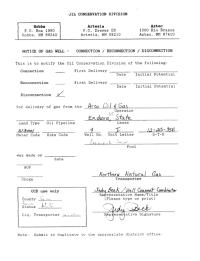 OIL CONSERVATION DIVISION
Hobbs Artesia Aztec
P.O. Box 1980 P.O. Drawer DD 1000 Rio Brazos
Hobbs, NM 88240 Artesia, NM 88210 Aztec, NM 87410
NOTICE OF GAS WELL - CONNECTION / RECONNECTION / DISCONNECTION
This is to notify the Oil Conservation Division of the following:
Connection First Delivery
Date Initial Potential
Reconnection First Delivery
Date Initial Potential
Disconnection
for delivery of gas from the Arco Oil & Gas
Operator
State
Lease
Land Type Oil Pipeline
Meter Code Site Code Well No. Unit Letter S-T-R
Pool
was made on
Date
AOF
Choke
Northern Natural Gas
Transporter
OCD use only
County
Liq. Transporter
Representative Name/Title
(Please type or print)
Judy Beck
Representative Signature
Note: Submit in duplicate to the appropriate district office.